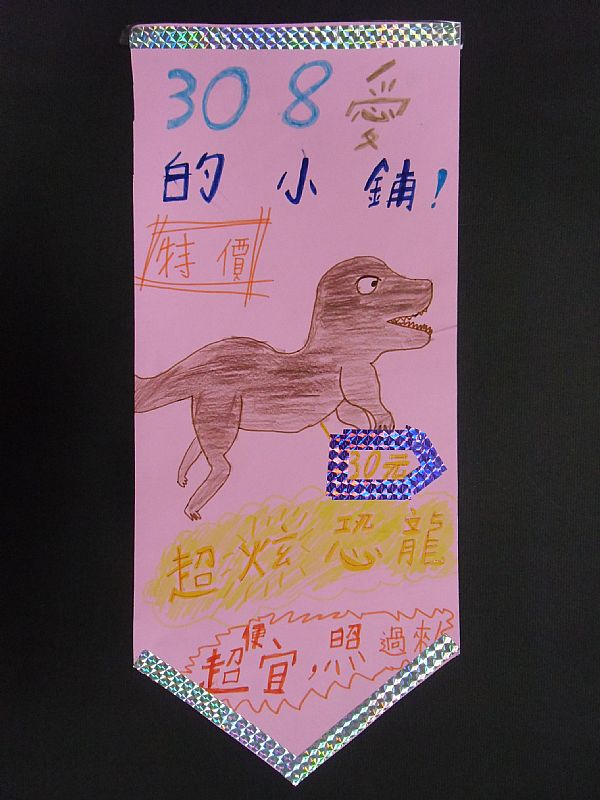 308愛
的小鋪!
特價
30元
超炫恐龍
超便宜,照過來!